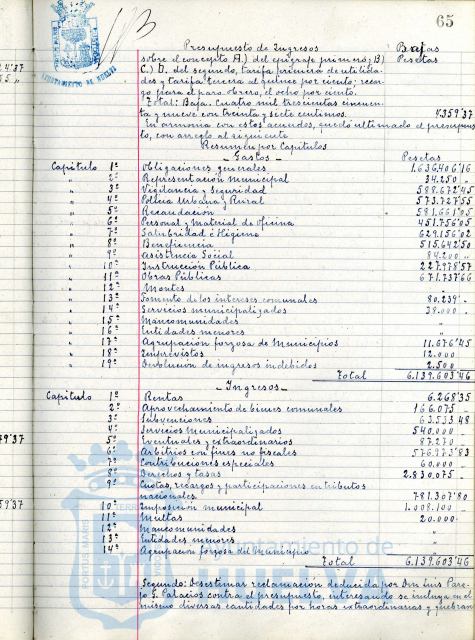 65
Presupuesto de Ingresos Bajas
sobre el concepto A) del epígrafe primero; B) Pesetas
C) D. del segundo, tarifa primera de utilida-
des y tarifa tercera al quince por ciento; recar-
go para el paro obrero, el ocho por ciento.
Total: Baja. Cuatro mil trescientas cincuen-
ta y nueve con treinta y siete centimos. 4.359'37
En armonía con estos acuerdos, quedó ultimado el presupues-
to, con arreglo al siguiente
Resumen por Capítulos
- Gastos - Pesetas
Capítulo 1º Obligaciones generales 1.636.406'16
" 2º Representación municipal 34.250 "
" 3º Vigilancia y seguridad 588.672'45
" 4º Policia Urbana y Rural 573.727'55
" 5º Recaudación 581.661'05
" 6º Personal y Material de oficina 451.756'05
" 7º Salubridad e Higiene 629.156'02
" 8º Beneficencia 515.642'50
" 9º Asistencia Social 84.200 "
" 10º Instrucción Pública 227.978'57
" 11º Obras Públicas 671.737'66
" 12º Montes "
" 13º Fomento de los intereses comunales 80.239' "
" 14º Servicios municipalizados 38.000 "
" 15º Mancomunidades "
" 16º Entidades menores "
" 17º Agrupación forzosa de Municipios 11.676'45
" 18º Imprevistos 12.000
" 19º Devolución de ingresos indebidos 2.500
Total 6.139.603'46
- Ingresos -
Capítulo 1º Rentas 6.268'35
2º Aprovechamiento de bienes comunales 166.075 "
3º Subvenciones 63.533'48
4º Servicios Municipalizados 540.000 "
5º Eventuales y extraordinarios 87.270 "
6º Arbitrios con fines no fiscales 576.973'83
7º Contribuciones especiales 60.000 "
8º Derechos y tasas 2.830.075 "
9º Cuotas, recargos y participaciones en tributos
nacionales 781.307'80
10º Imposición municipal 1.008.100 "
11º Multas 20.000 "
12º Mancomunidades "
13º Entidades menores "
14º Agrupacion forzosa del Municipio
Total 6.139.603'46
Segundo: Desestimar reclamación deducida por Don Luis Pare-
jo G. Palacios contra el presupuesto, interesando se incluya en el
mismo diversas cantidades por horas extraordinarias y quebran
AYUNTAMIENTO DE HUELVA
Ayuntamiento de
HUELVA